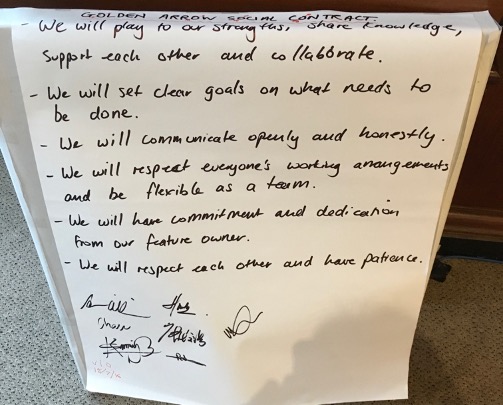 GOLDEN ARROW SOCIAL CONTRACT
- We will play to our strengths, share knowledge,
support each other and collabbrate.
- We will set clear goals on what needs to
be done.
- We will communicate openly and honestly.
- We will respect everyone's working arrangements
and be flexible as a team.
- We will have commitment and dedication
from our feature owner.
- We will respect each other and have patience.